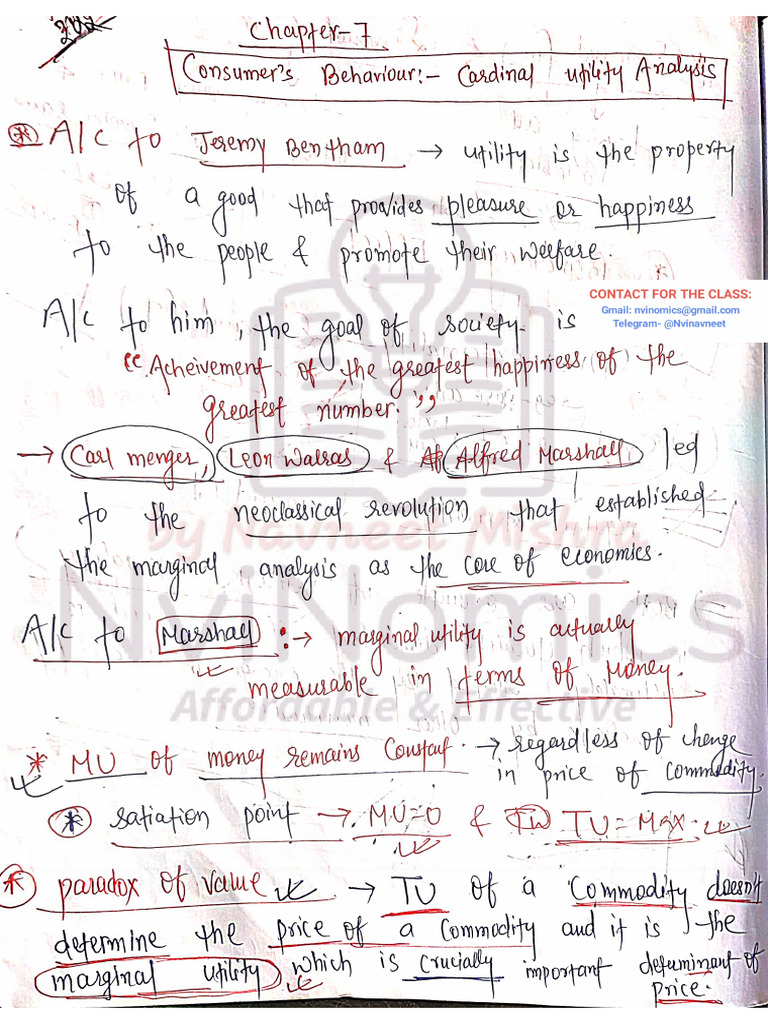 Chapter-7
Consumer's Behaviour:- Cardinal utility Analysis
A/c to Jeremy Bentham → utility is the property
of a good that provides pleasure or happiness
to the people & promote their welfare.
CONTACT FOR THE CLASS:
Gmail: nvinomics@gmail.com
Telegram- @Nvinavneet
A/c to him, the goal of society is
"Acheivement of the greatest happiness of the
greatest number."
→ Carl menger, Leon Walras & Alfred Marshall led
to the neoclassical revolution that established
by Navneet Mishra
the marginal analysis as the core of economics.
NviNomics
A/c to Marshall :→ marginal utility is actually
measurable in terms of Money.
Affordable & Effective
* MU of money remains Constant. → regardless of change
in price of commodity.
* satiation point → MU=0 & TU = Max.
* paradox of value → TU of a commodity doesn't
determine the price of a commodity and it is the
marginal utility which is crucially important determinant of
price.